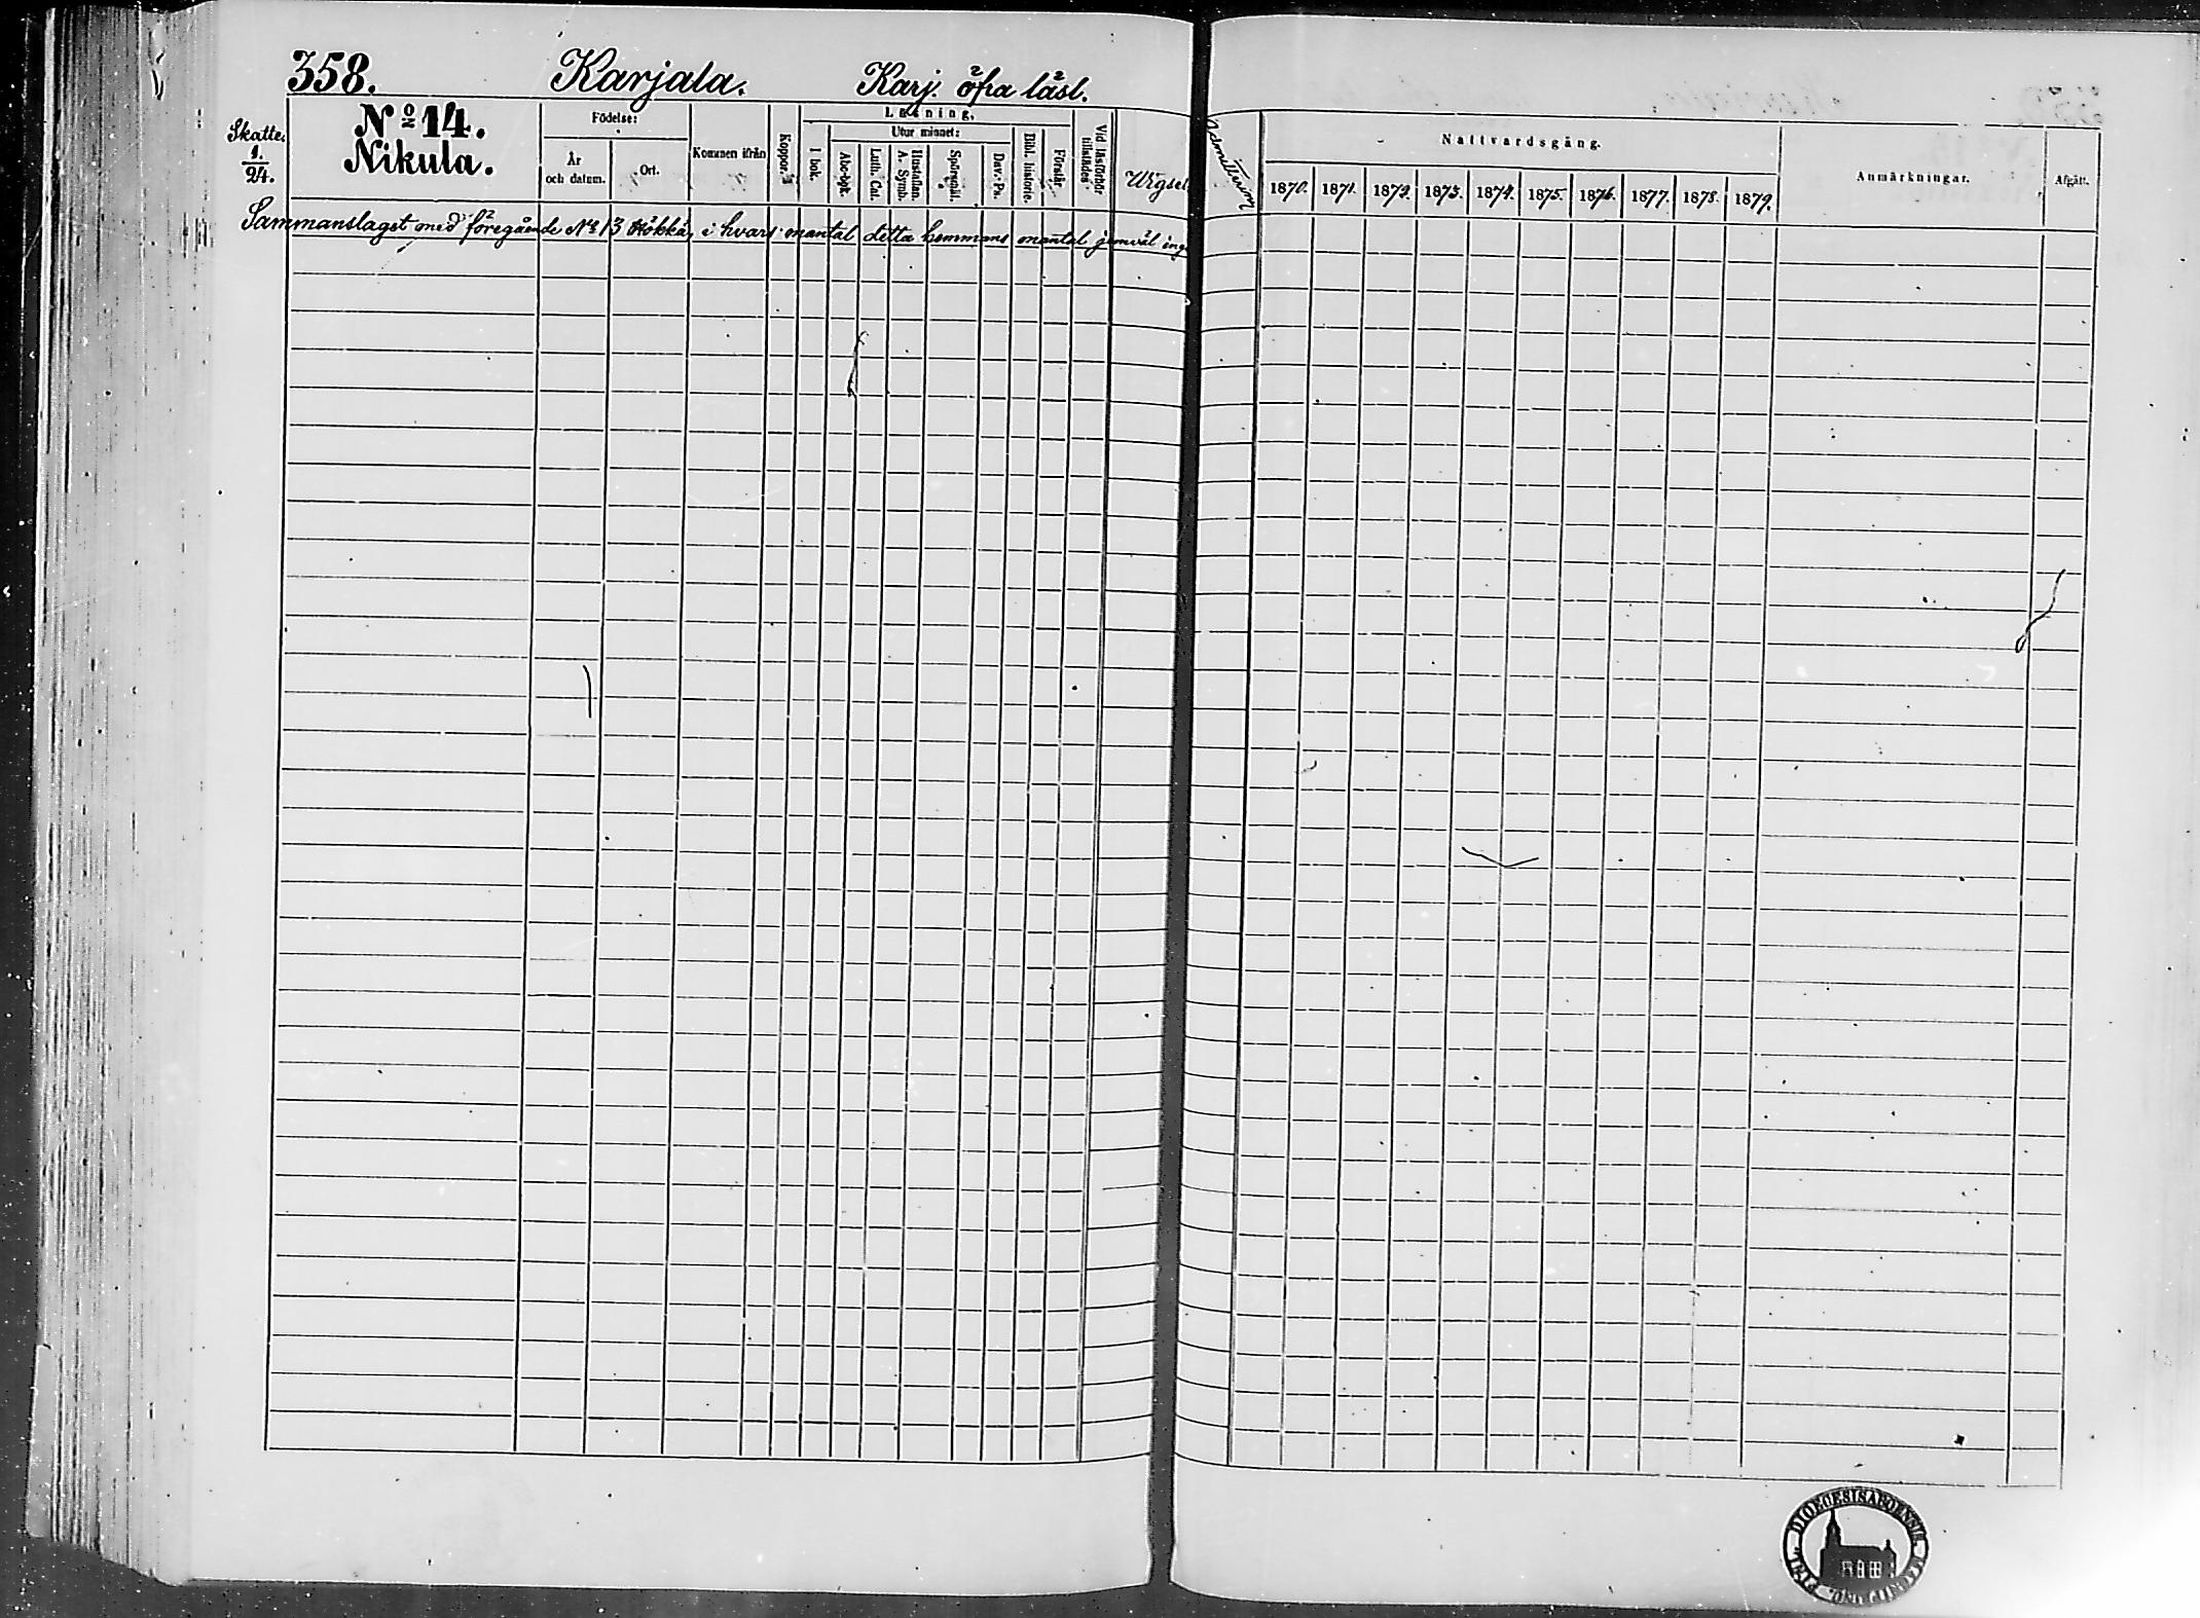 358. Karjala. Karj. öfra läsl.
Skatte.
1.
24.
No 14.
Nikula.
Födelse:
År
och datum.
Ort.
Kommen ifrån
Koppor.
Läsning.
I bok.
Utur minnet:
Abc-bok.
Luth. Cat.
Hustaflan.
A. Symb.
Spörsmål.
Dav. Ps.
Bibl. historie.
Förstår
Vid läsförhör
tillstädes
Wigsel
Admitterim
Nattvardsgång.
1870. 1871. 1872. 1873. 1874. 1875. 1876. 1877. 1878. 1879.
Anmärkningar.
Afgått.
Sammanslaget med föregående No 13 Kökkä, i hvars mantal detta hemmans mantal jemväl ing